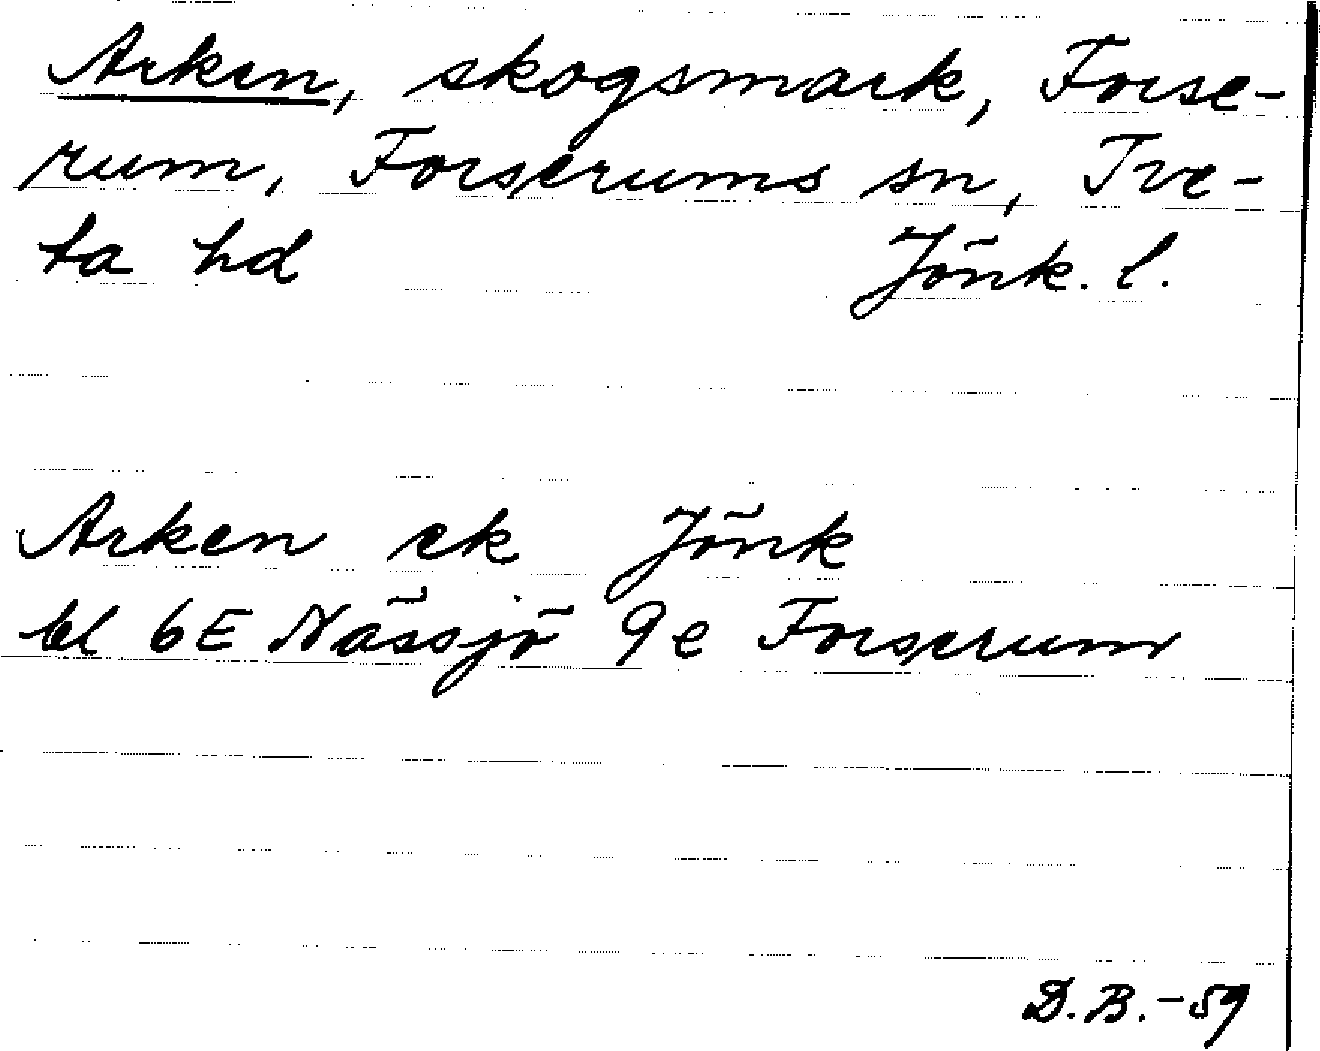 Arken, skogsmark, Forse-
rum, Forserums sn, Tve-
ta hd Jönk. l.
Arken ek Jönk
bl 6E Nässjö 9e Forserum
D.B.-59